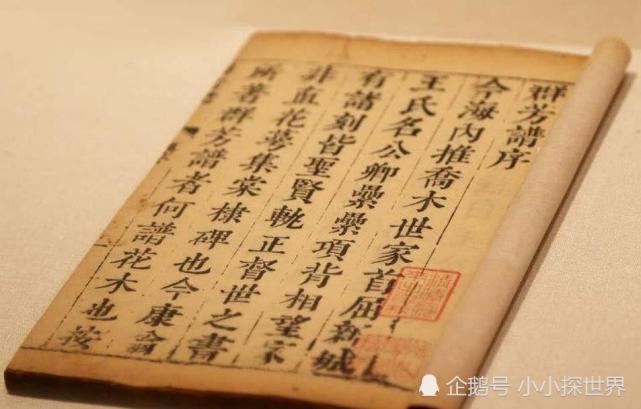 群芳譜序
今海內推喬木世家首屈新城
王氏名公卿纍纍項背相望家
有諸刻皆聖賢軌正督世之書
非血花夢集棠棣碑也今康
所著群芳譜者何譜花木也
企鹅号 小小探世界